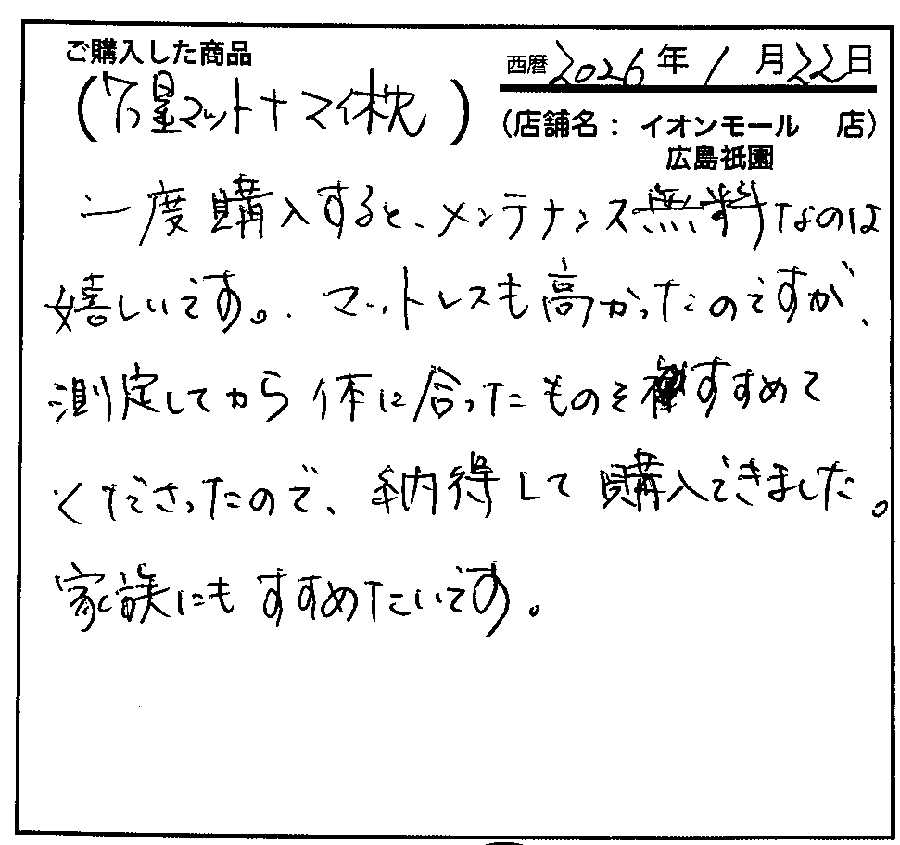 ご購入した商品
西暦 2026年 1月22日
(7つ星マット+マイ枕)
(店舗名: イオンモール 店)
広島祇園
一度購入すると、メンテナンス無料なのは
嬉しいです。マットレスも高かったのですが、
測定してから体に合ったものをすすめて
くださったので、納得して購入できました。
家族にもすすめたいです。